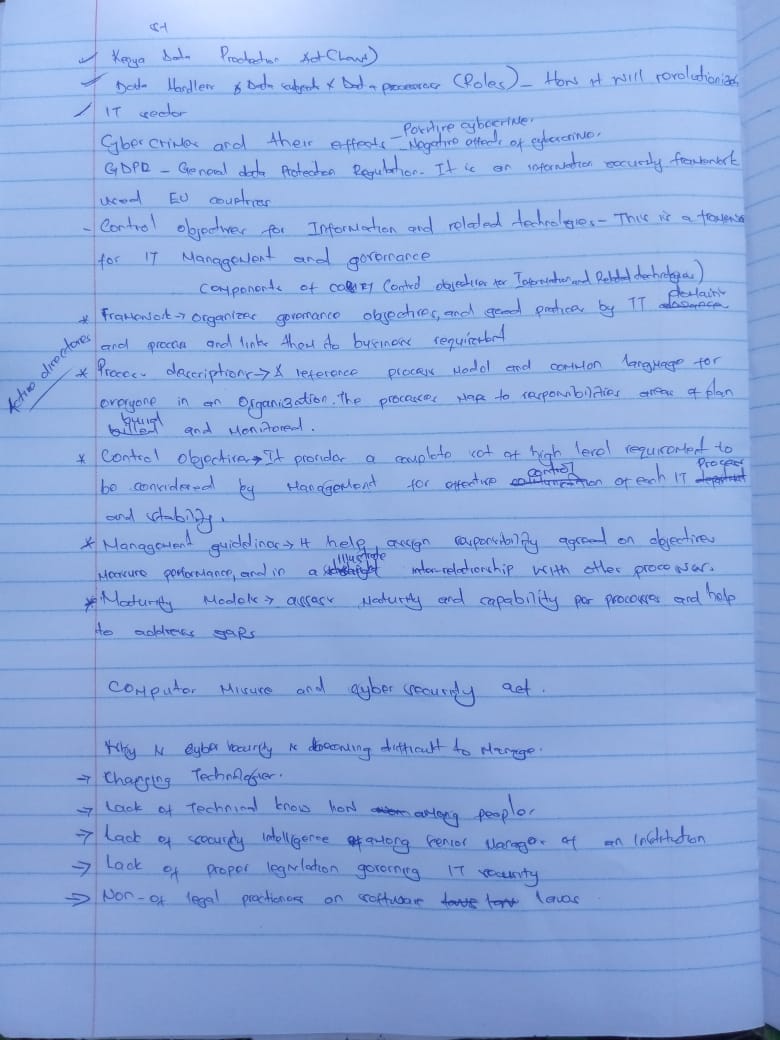 Kenya Data Protection Act (Laws)
Data Handlers & Data subjects & Data processors (Roles) - How it will revolutionize
IT sector
- Positive cybercrime.
Cyber crimes and their effects - Negative effects of cybercrime.
GDPR - General data Protection Regulation. It is an information security framework
used EU countries
- Control objectives for Information and related technologies - This is a framework
for IT Management and governance
components of COBIT (Control objectives for Information and Related technologies)
Active directories
* Framework → organizes governance objectives, and good practices by IT domains
and process and links them to business requirement
* Process descriptions → A reference process model and common language for
everyone in an organization. The processes map to responsibilities areas of plan
build and Monitored.
* Control objectives → It provides a complete set of high level requirement to
be considered by Management for effective control of each IT Process
and stability.
* Management guidelines → It help assign responsibility agreed on objectives
Measure performance, and in a illustrate inter-relationship with other processes.
* Maturity Models → assess Maturity and capability per processes and help
to address gaps
Computer Misuse and cyber security act.
Why is cyber security is becoming difficult to Manage.
→ Changing Technologies.
→ Lack of Technical know how among people
→ Lack of security intelligence among senior Manager of an Institution
→ Lack of proper legislation governing IT security
→ Non-of legal practioners on software laws